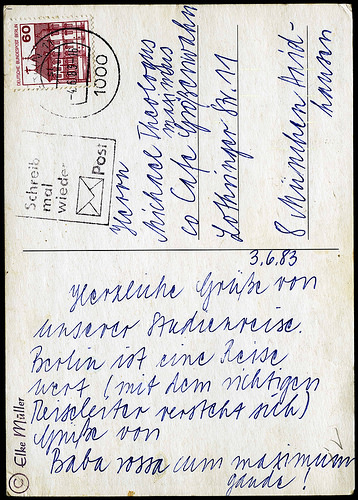 DEUTSCHE BUNDESPOST BERLIN
60
1000
Schreib
mal
wieder
Post
Herrn
Michael Theologus
maximus
co Café Größenwahn
Lothringer Str. 11
8 München Haid-
hausen
3.6.83
Herzliche Grüße von
unserer Studienreise.
Berlin ist eine Reise
wert (mit dem richtigen
Reiseleiter versteht sich)
Grüße von
Baba rossa cum maximum
gaude!
© Elke Müller